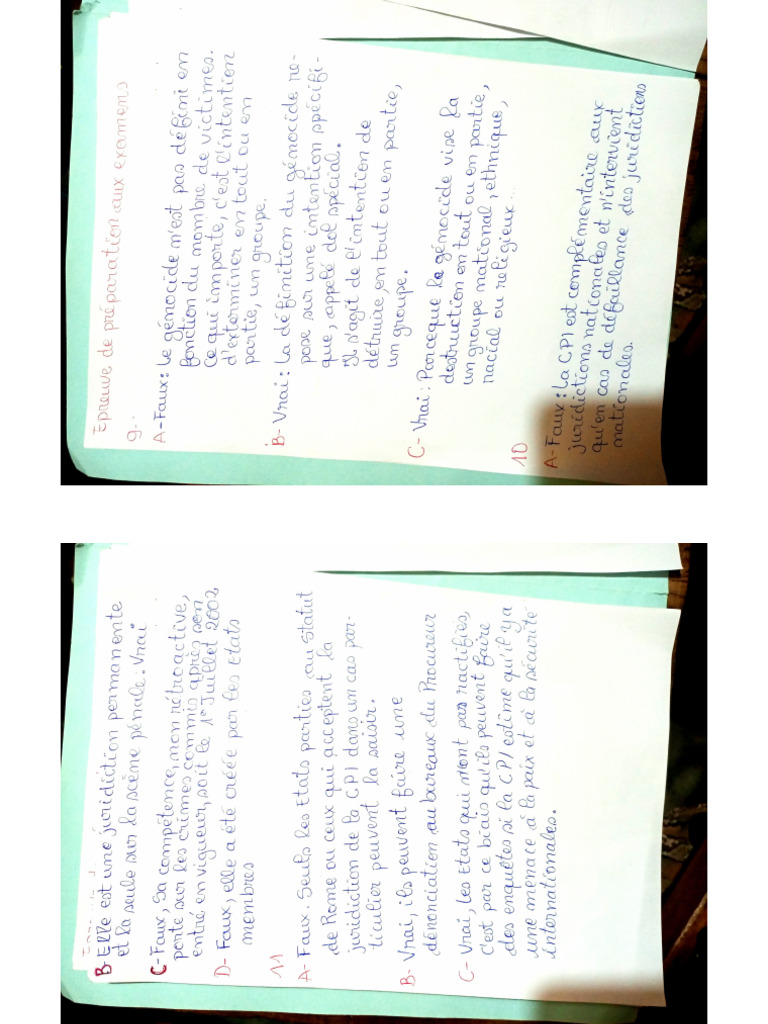 Epreuve de préparation aux examens
9.
A-Faux: Le génocide n'est pas défini en
fonction du nombre de victimes.
Ce qui importe, c'est l'intention
d'exterminer en tout ou en
partie, un groupe.
B-Vrai: La définition du génocide re-
pose sur une intention spécifi-
que, appelé dol spécial.
Il s'agit de l'intention de
détruire, en tout ou en partie,
un groupe.
C- Vrai: Parceque le génocide vise la
destruction en tout ou en partie,
un groupe national, ethnique,
racial ou religieux...
10
A-Faux: La CPI est complémentaire aux
juridictions nationales et n'intervient
qu'en cas de défaillance des juridictions
nationales.
B-Elle est une juridiction permanente
et la seule sur la scène pénale: Vrai
C-Faux, sa compétence, non rétroactive,
porte sur les crimes commis après son
entré en vigueur, soit le 1er Juillet 2002
D- Faux, elle a été créée par les Etats
membres
11
A- Faux. Seuls les Etats parties au statut
de Rome ou ceux qui acceptent la
juridiction de la CPI dans un cas par-
ticulier peuvent la saisir.
B- Vrai, ils peuvent faire une
dénonciation au bureaux du Procureur
C- Vrai, les Etats qui n'ont pas ractifiés,
c'est par ce biais qu'ils peuvent faire
des enquêtes si la CPI estime qu'il y a
une menace à la paix et à la sécurité
internationales.